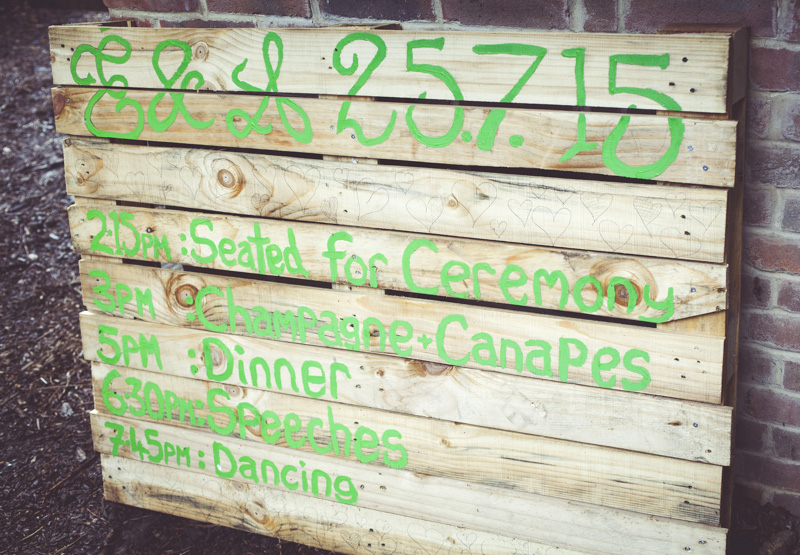 E & A 25.7.15
2:15PM : Seated for Ceremony
3PM : Champagne + Canapes
5PM : Dinner
6:30PM: Speeches
7:45PM : Dancing